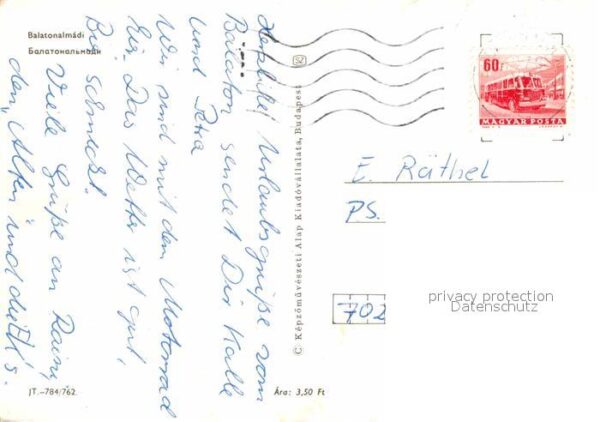 Balatonalmádi
Балатоналмади
Herzliche Urlaubsgrüße vom
Balaton sendet Dir Kalle
und Petra
Wir sind mit dem Motorrad
hier. Das Wetter ist gut,
Bier schmeckt.
Viele Grüße an Raini,
den "Alten" und die
JT.-784/762.
Ára: 3,50 Ft
C Képzőművészeti Alap Kiadóvállalata, Budapest
60f
MAGYAR POSTA
E. Räthel
PS.
702
privacy protection
Datenschutz